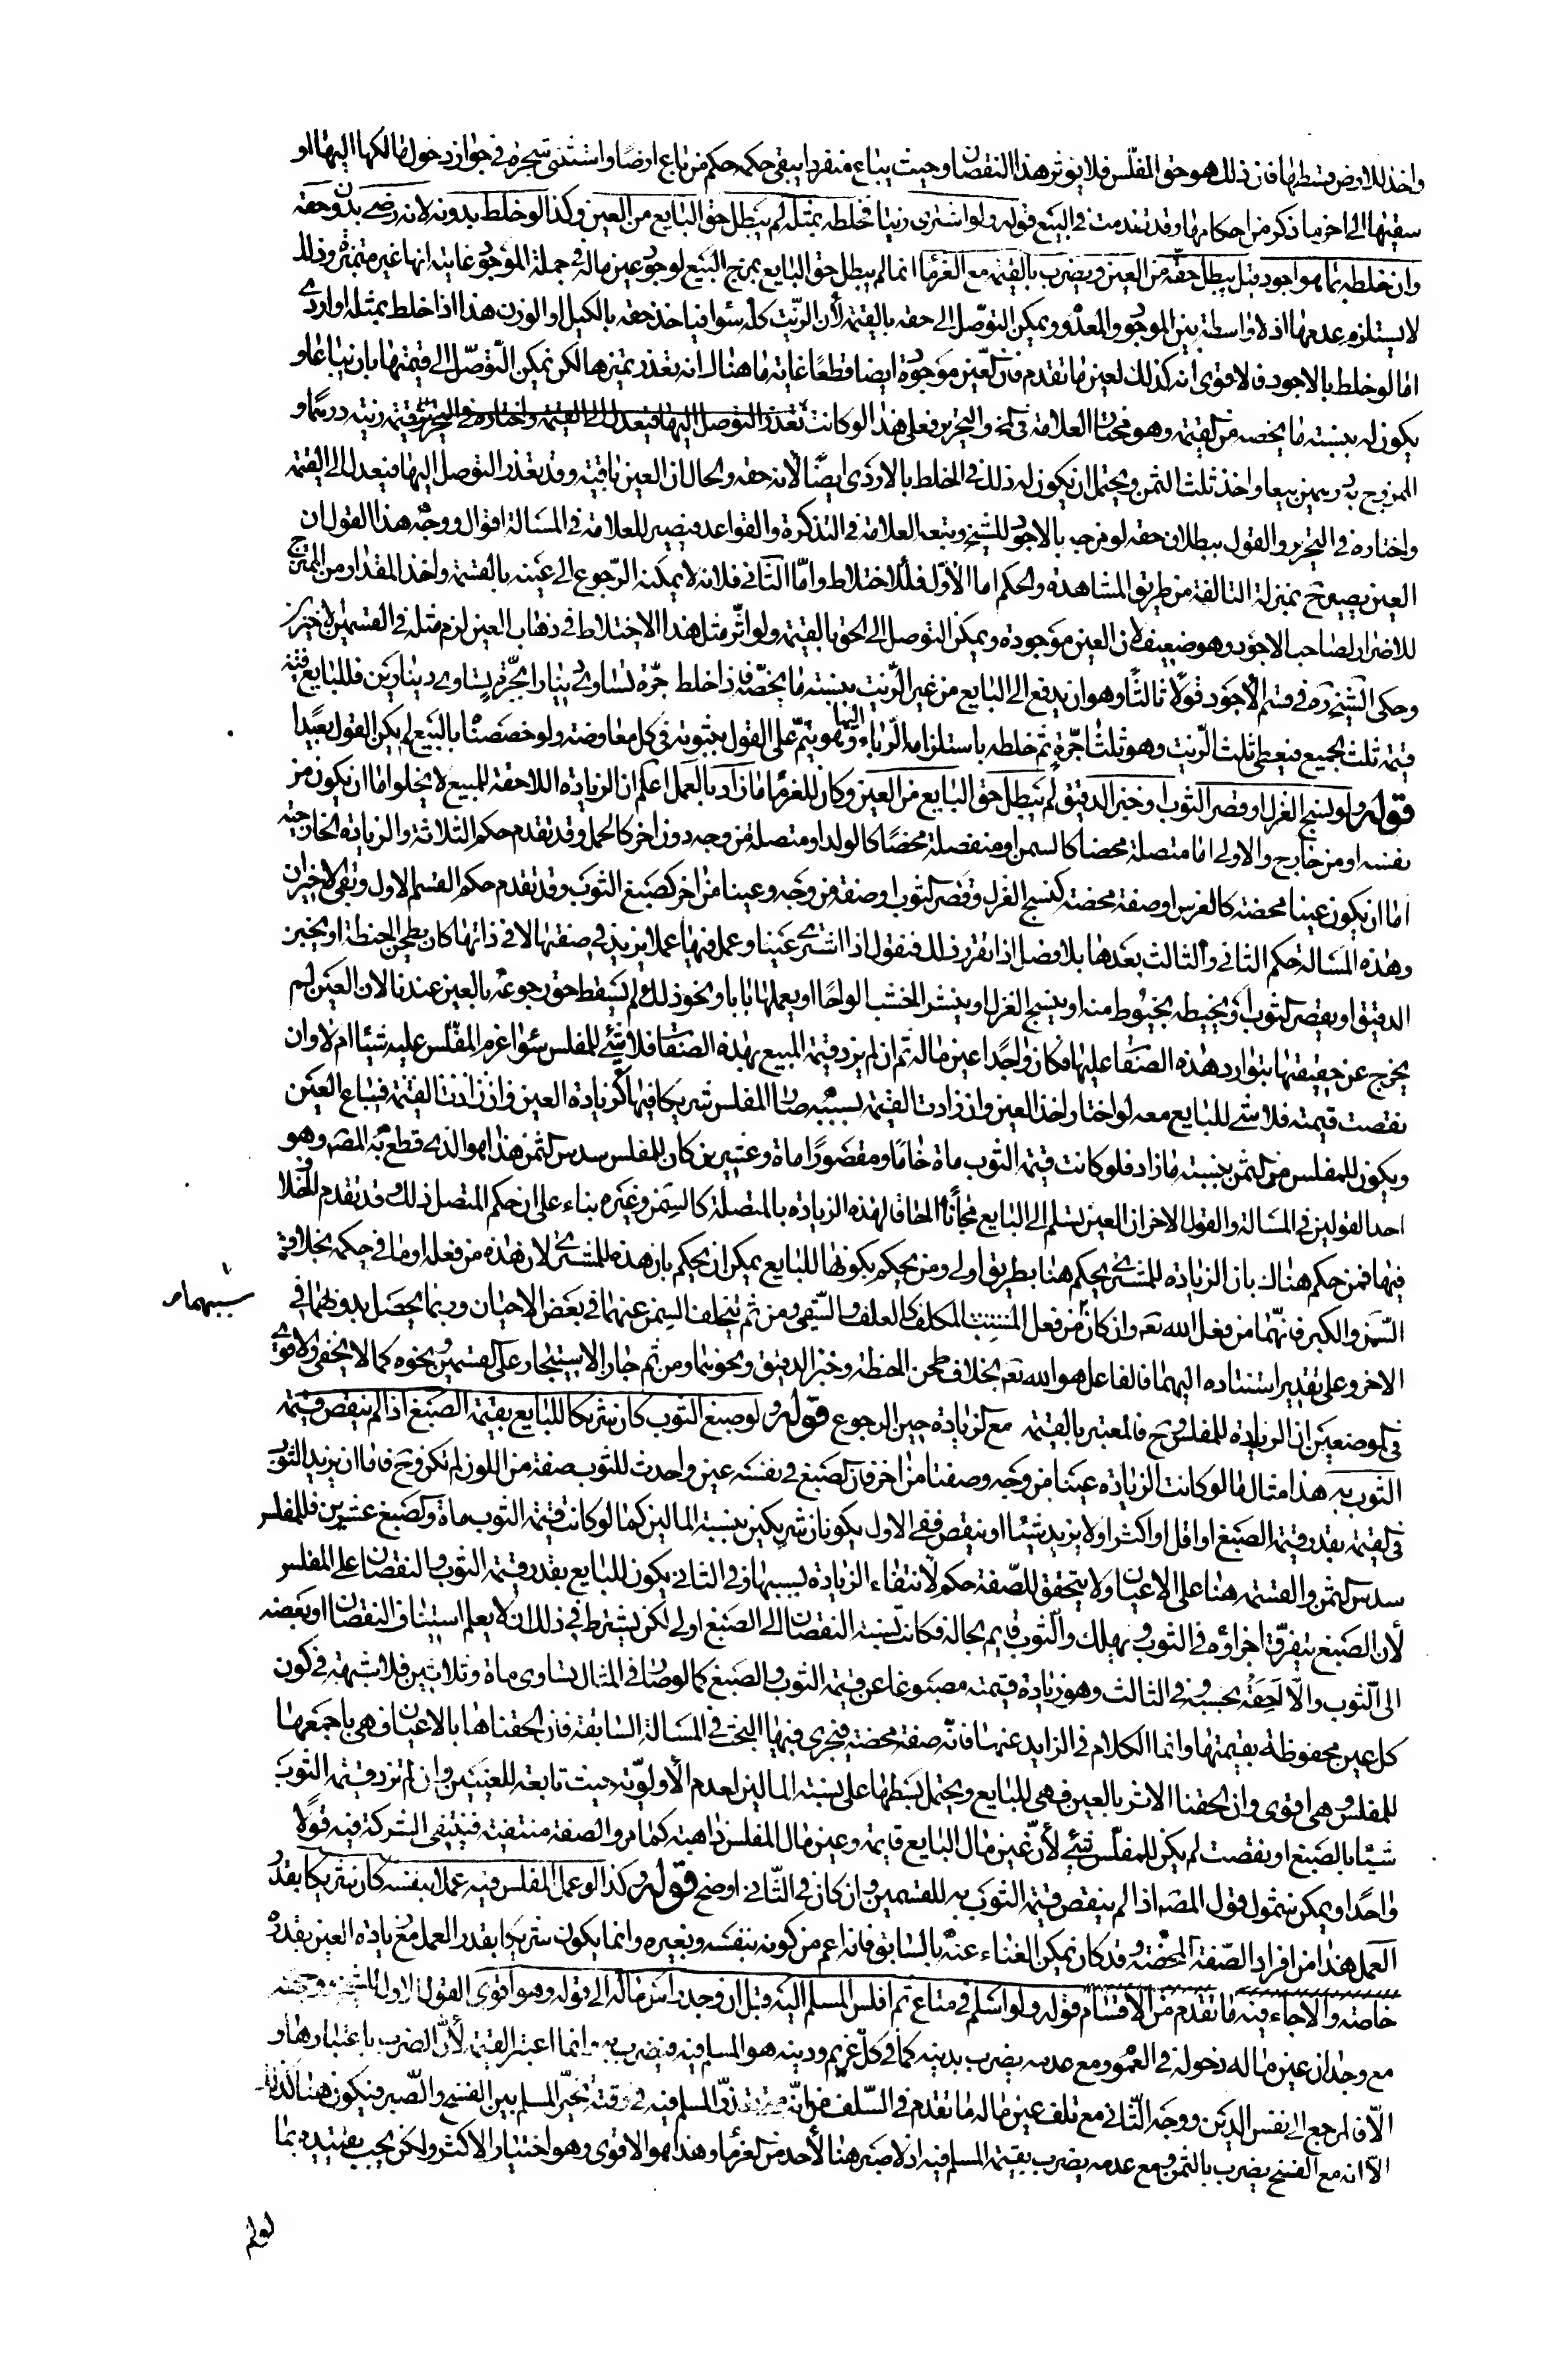 واخذ للارض قسطها فان ذلك هو حق المفلس فلا يؤثر هذا النقصان وحيث يباع منفردا يبقى حكمه حكم من باع ارضا واستثنى شجره في جواز دخول مالكها اليها او
سقيها الى اخر ما ذكر من احكامها وقد تقدمت في البيع قوله ولو اشترى زيتا فخلطه بمثله لم يبطل حق البايع من العين وكذا لو خلطه بدونه لانه رضي بدون حقه
وان خلطه بما هو اجود قيل يبطل حقه من العين ويضرب بالقيمة مع الغرما انما لم يبطل حق البايع بمزج المبيع لوجود عين ماله في جملة الموجود غايته انها غير متميزة وذلك
لا يستلزم عدمها اذ لا واسطة بين الموجود والمعدوم ويمكن التوصل الى حقه بالقيمة لأن الزيت كله سوا فياخذ حقه بالكيل او الوزن هذا اذا خلط بمثله او اردى
اما لو خلط بالاجود فالاقوى انه كذلك لعين ما تقدم فان العين موجودة ايضا قطعا غاية ما هناك انه تعذر تميزها لكن يمكن التوصل الى قيمتها بان يباعا و
يكون له بنسبة ما يخصه من القيمة وهو مختار العلامة في لف والتحرير فعلى هذا لو كانت تعذر التوصل اليها فيعدل الى القيمة واختاره في التحرير قيمة زيته درهما و
الممزوج به درهمين بيعا واخذ ثلث الثمن ويحتمل ان يكون له ذلك في الخلط بالاردى ايضا لأنه حقه والحال ان العين باقية وقد تعذر التوصل اليها فيعدل الى القيمة
واختاره في التحرير والقول ببطلان حقه لو مزجه بالاجود للشيخ وتبعه العلامة في التذكرة والقواعد فيصير للعلامة في المسالة اقوال ووجه هذا القول ان
العين يصير ح بمنزلة التالفة من طريق المشاهدة والحكم اما الأول فللاختلاط واما الثاني فلانه لا يمكنه الرجوع الى عينه بالقسمة واخذ المقدار من الممتزج
للاضرار لصاحب الاجود وهو ضعيف لان العين موجودة ويمكن التوصل الى الحق بالقيمة ولو اثر مثل هذا الاختلاط في ذهاب العين لزم مثله في القسمين الاخيرين
وحكى الشيخ ره في قسم الأجود قولا ثالثا وهو ان يدفع الى البايع من غير الزيت بنسبة ما يخصه فاذا خلط جرة تساوي دينارا بجرة تساوي دينارين فللبايع قيمة
قيمة ثلث الجميع فيعطى ثلث الزيت وهو ثلثا جرة ثم خلطه باستلزامه الرباء وانما هو يتم على القول بثبوته في كل معاوضة ولو خصصناه بالبيع لم يكن القول بعيدا
قوله ولو نسج الغزل او قصر الثوب او خبز الدقيق لم يبطل حق البايع من العين وكان للغرما ما زاد بالعمل اعلم ان الزيادة اللاحقة للمبيع لا يخلوا اما ان يكون من
نفسه او من خارج والاولى اما متصلة محضا كالسمن او منفصلة محضا كالولد او متصلة من وجه دون اخر كالحمل وقد تقدم حكم الثلاثة والزيادة الخارجية
اما ان يكون عينا محضة كالغرس او صفة محضة كنسج الغزل وقصر الثوب او صفة من وجه وعينا من اخر كصبغ الثوب وقد تقدم حكم القسم الاول وبقي الاخيران
وهذه المسالة حكم الثاني والثالث بعدها بلا فصل اذا تقرر ذلك فنقول اذا اشترى عينا وعمل فيها عملا يزيد في صفتها لا في ذاتها كان يطحن الحنطة او يخبز
الدقيق او يقصر الثوب او يخيطه بخيوط منه او ينسج الغزل او ينشر الخشب الواحا او يعملها بابا ونحو ذلك لم يسقط حق رجوعه بالعين عندنا لان العين لم
يخرج عن حقيقتها بتوارد هذه الصفات عليها فكان واجدا عين ماله ثم ان لم يزد قيمة المبيع بهذه الصفات فلا شئ للمفلس سوا غرم المفلس عليه شيئا ام لا وان
نقصت قيمته فلا شئ للبايع معه لو اختار اخذ العين وان زادت القيمة بسببه صار المفلس شريكا فيها كزيادة العين وان زادت القيمة فيباع العين
ويكون للمفلس من الثمن بنسبة ما زاد فلو كانت قيمة الثوب ماة خاما ومقصورا ماة وعشرين كان للمفلس سدس الثمن هذا هو الذي قطع به المصه وهو
احد القولين في المسالة والقول الاخر ان العين تسلم الى البايع مجانا الحاقا لهذه الزيادة بالمتصلة كالسمن وغيره بناء على ان حكم المتصل ذلك وقد تقدم الخلاف
فيها فمن حكم هناك بان الزيادة للمشتري يحكم هنا بطريق اولى ومن يحكم بكونها للبايع يمكن ان يحكم بان هذه للمشتري لان هذه من فعله او ما في حكمه بخلاف
السمن والكبر فانهما من فعل الله تع وان كان من فعل المكلف كالعلف والسقي ومن ثم يتخلف السمن عنهما في بعض الاحيان وربما يحصل بدونهما في
سببهما
الاخر وعلى تقدير استناده اليهما فالفاعل هو الله تع بخلاف طحن الحنطة وخبز الدقيق ونحوهما ومن ثم جاز الاستيجار على القسمين ونحوه كما لا يخفى والاقوى
في الموضعين ان الزيادة للمفلس وح فالمعتبر بالقيمة مع الزيادة حين الرجوع قوله ولو صبغ الثوب كان شريكا للبايع بقيمة الصبغ اذا لم ينقص قيمة
الثوب به هذا مثال ما لو كانت الزيادة عينا من وجه وصفتا من اخر فان الصبغ في نفسه عين واحدث للثوب صفة من اللون لم تكن وح فاما ان يزيد الثوب
في القيمة بقدر قيمة الصبغ او اقل او اكثر او لا يزيد شيئا او ينقص ففي الاول يكونان شريكين بنسبة المالين كما لو كانت قيمة الثوب ماة والصبغ عشرين فللمفلس
سدس الثمن والقسمة هنا على الاعيان ولا يتحقق للصفة حكم لانتفاء الزيادة بسببها وفي الثاني يكون للبايع بقدر قيمة الثوب والنقصان على المفلس
لأن الصبغ يتفرق اجزاؤه في الثوب ويهلك والثوب قايم بحاله فكانت نسبة النقصان الى الصبغ اولى لكن يشترط في ذلك ان لا يعلم استيناف النقصان او بعضه
الى الثوب والا لحقه بحسبه وفي الثالث وهو زيادة قيمته مصبوغا عن قيمة الثوب والصبغ كما لو صار في المثال يساوى ماة وثلاثين فلا شبهة في كون
كل عين محفوظة بقيمتها وانما الكلام في الزايد عنها فانه صفة محضة فيجري فيها البحث في المسالة السابقة فان الحقناها بالاعيان فهي باجمعها
للمفلس وهي اقوى وان الحقنا الاثر بالعين فهي للبايع ويحتمل بسطها على نسبة المالين لعدم الأولوية حيث تابعة للعينين وان لم تزد قيمة الثوب
شيئا بالصبغ او نقصت لم يكن للمفلس شئ لأن عين مال البايع قايمة وعين مال المفلس ذاهبة كما مر والصفة منتفية فينتفي الشركة فيه قولا
واحدا ويمكن شمول قول المصه اذا لم ينقص قيمة الثوب به للقسمين وان كان في الثاني اوضح قوله وكذا لو عمل المفلس فيه عملا بنفسه كان شريكا بقدر
العمل هذا من افراد الصفة المحضة وقد كان يمكن الغناء عنه بالسابق فانه اعم من كونه بنفسه وبغيره وانما يكون شريكا بقدر العمل مع زيادة العين بقدره
خاصة والا جاء فيه ما تقدم من الاقسام قوله ولو اسلم في متاع ثم افلس المسلم اليه قيل ان وجد راس ماله الى قوله وهو اقوى القول الاول للشيخ ووجهه
مع وجدان عين ماله دخوله في العموم ومع عدمه يضرب بدينه كما في كل غريم ودينه هو المسلم فيه فيضرب به وانما اعتبر القيمة لأن الضرب باعتبارها و
الا فالمرجع الى نفس الدين ووجه الثاني مع تلف عين ماله ما تقدم في السلف من انه متى تعذر المسلم فيه في وقته تخير المسلم بين الفسخ والصبر فيكون هنا كذلك
الا انه مع الفسخ يضرب بالثمن ومع عدمه يضرب بقيمة المسلم فيه اذ لا صبر هنا لأحد من الغرما وهذا هو الاقوى وهو اختيار الاكثر ولكن يجب تقييده بما
لو لم